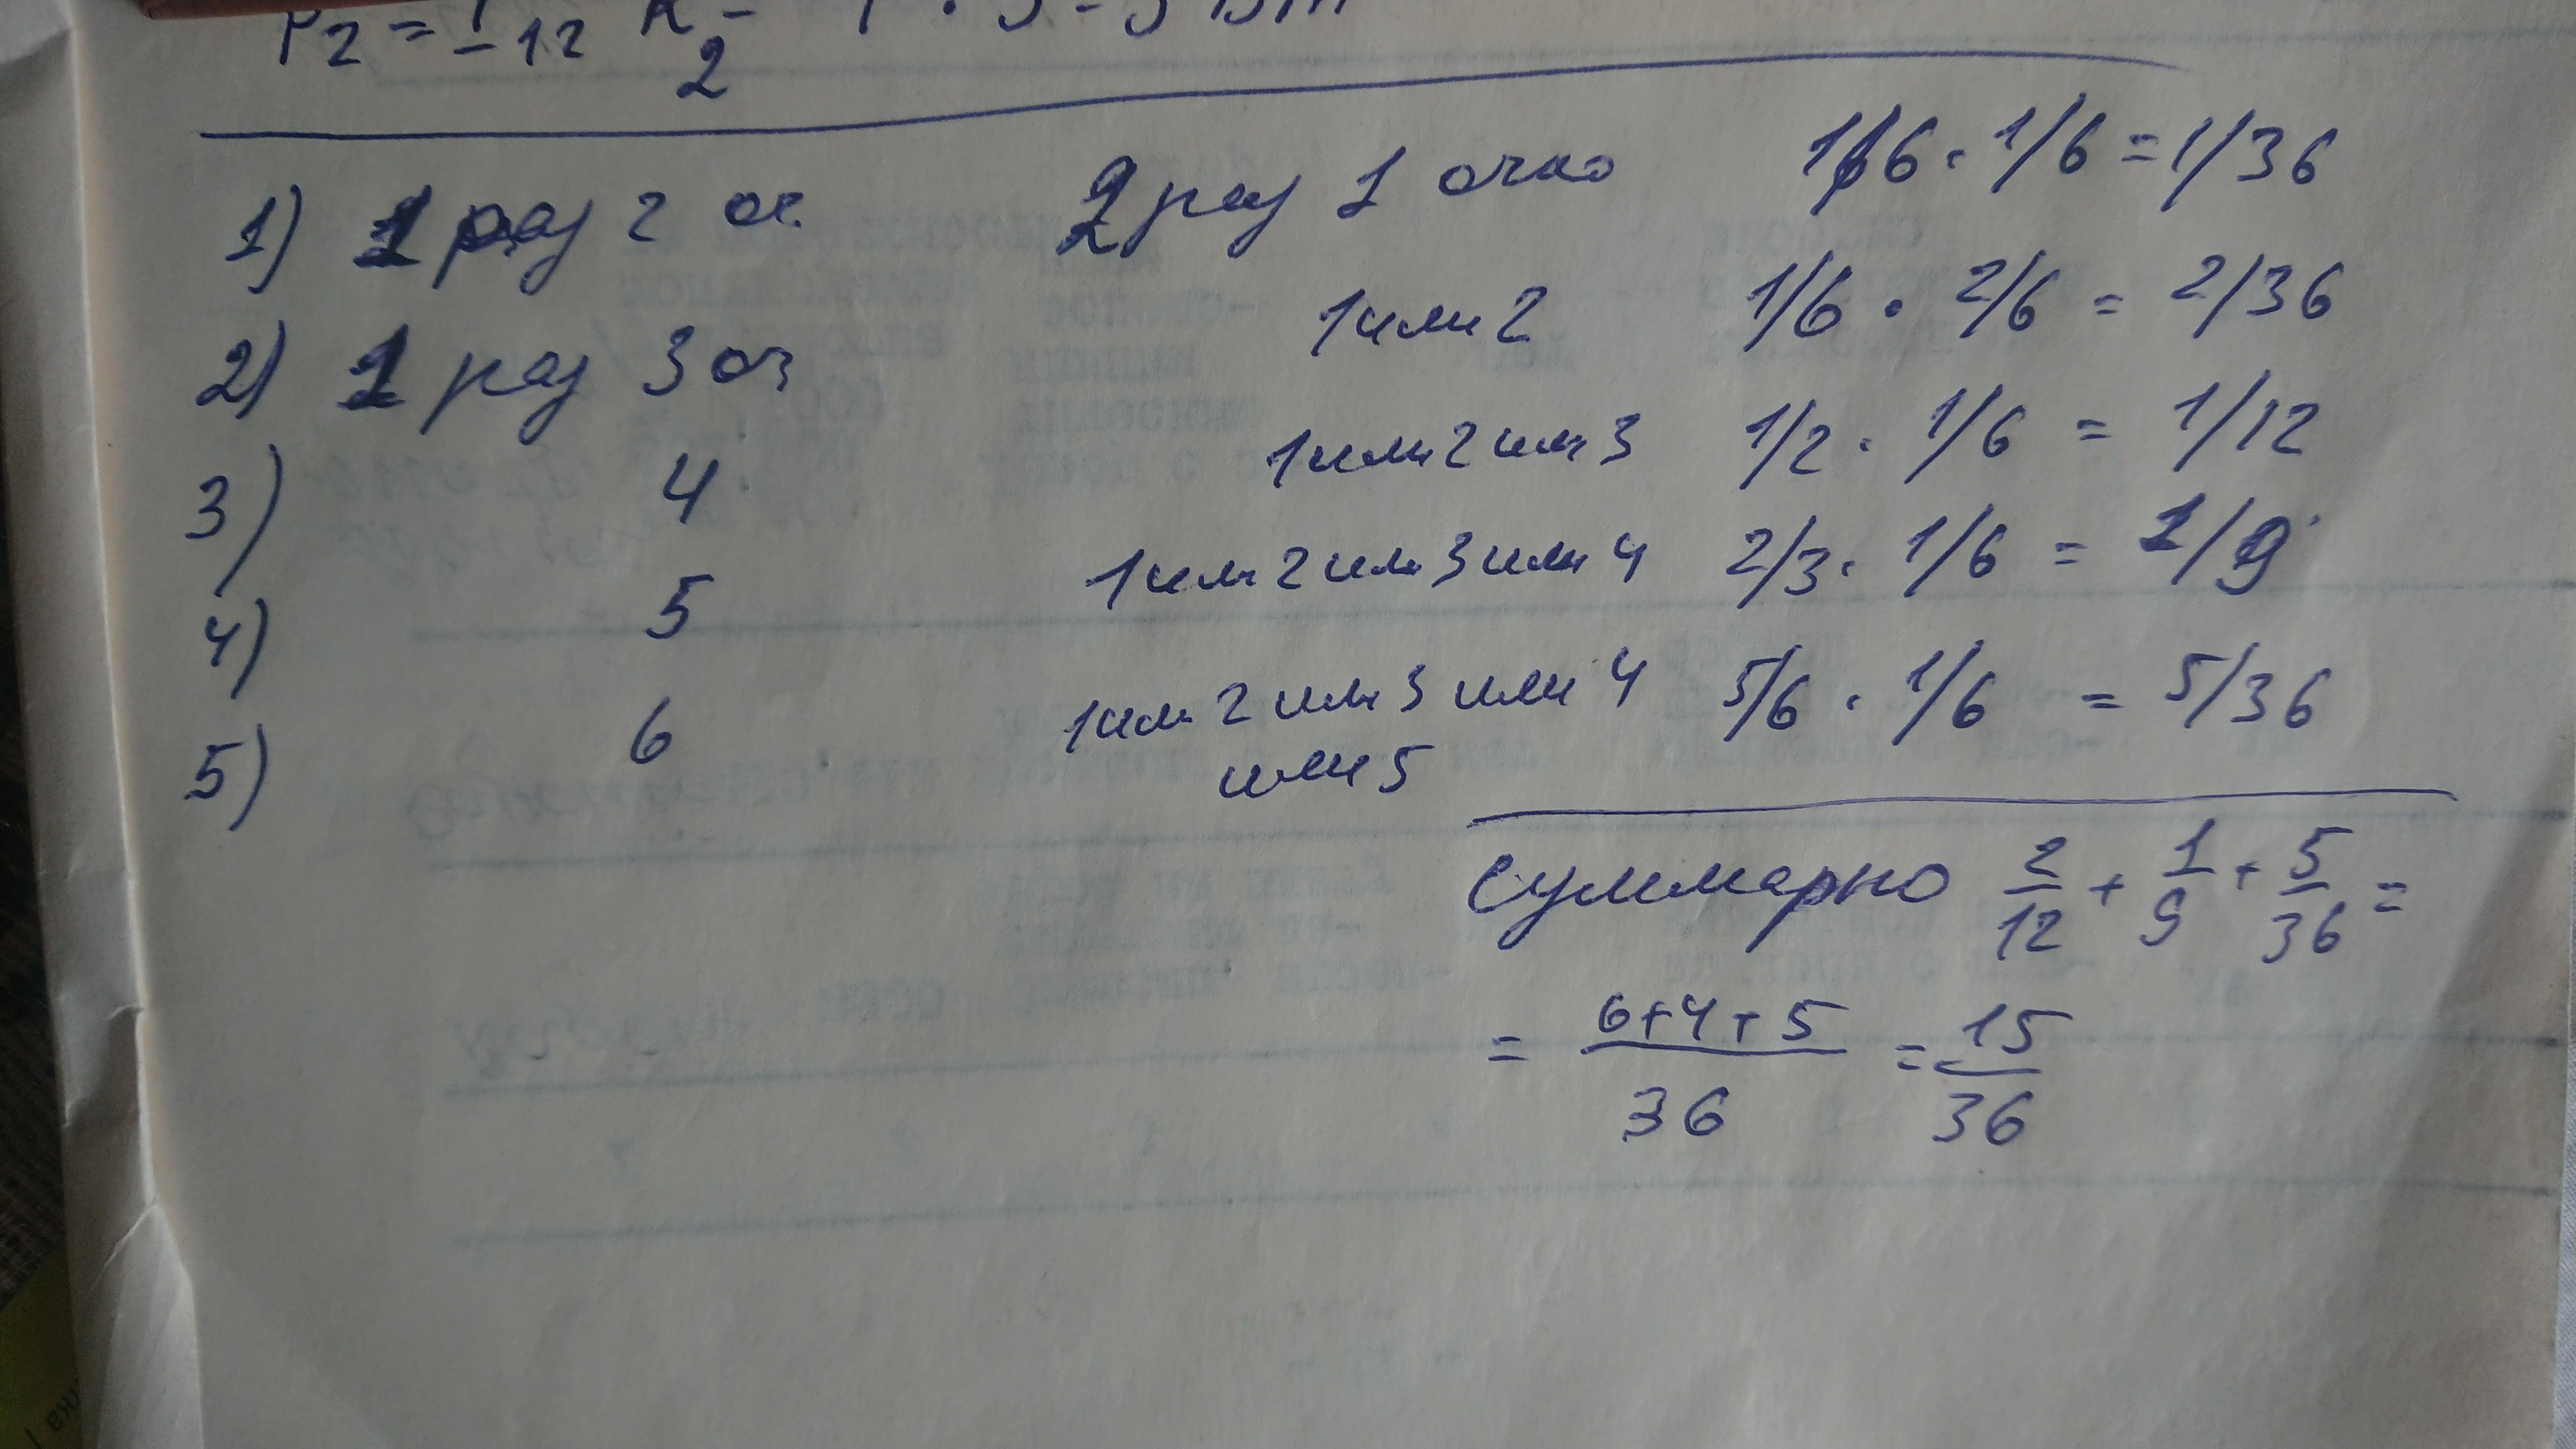 P2 =
1) 1 раз 2 оч 2 раз 1 очко 1/6 · 1/6 = 1/36
2) 1 раз 3 оч 1 или 2 1/6 · 2/6 = 2/36
3) 4 1 или 2 или 3 1/2 · 1/6 = 1/12
4) 5 1 или 2 или 3 или 4 2/3 · 1/6 = 1/9
5) 6 1 или 2 или 3 или 4 5/6 · 1/6 = 5/36
или 5
Суммарно 2/12 + 1/9 + 5/36 =
= 6+4+5/36 = 15/36